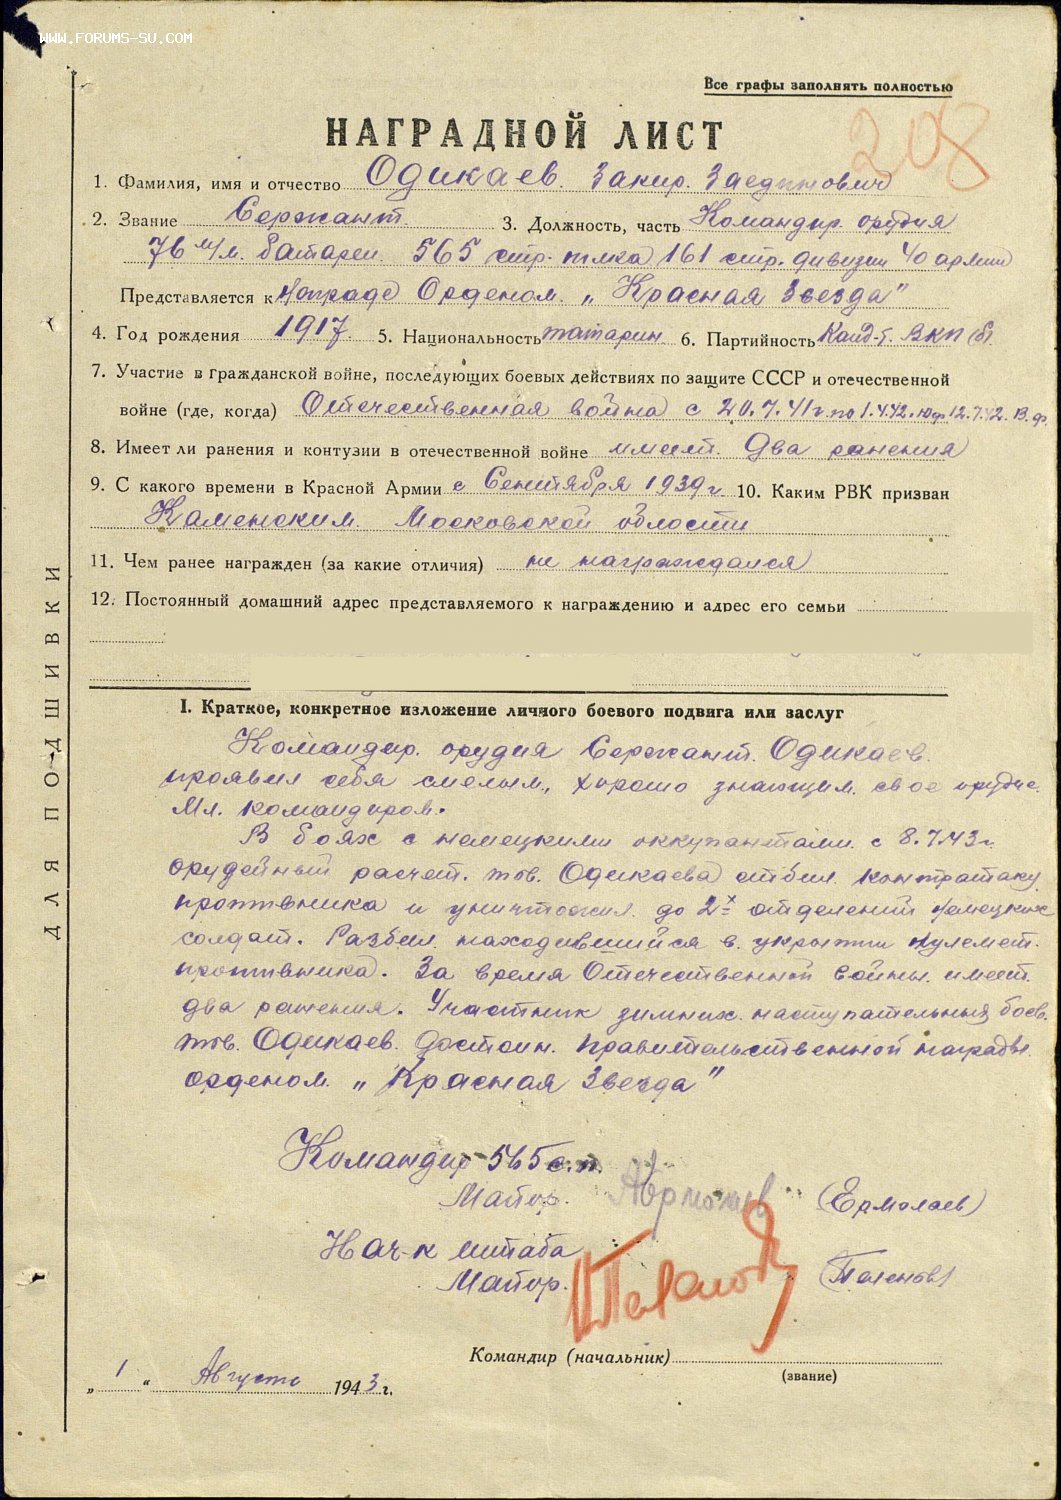 WWW.FORUMS-SU.COM
Все графы заполнять полностью
208
НАГРАДНОЙ ЛИСТ
1. Фамилия, имя и отчество Одикаев. Закир. Заединович
2. Звание Сержант. 3. Должность, часть Командир орудия
76 м/м. батареи. 565 стр. полка 161 стр. дивизии 40 армии
Представляется к награде Орденом. „Красная Звезда"
4. Год рождения 1917 5. Национальность татарин 6. Партийность Канд-т. ВКП(б).
7. Участие в гражданской войне, последующих боевых действиях по защите СССР и отечественной
войне (где, когда) Отечественная война с 20.7.41г. по 1.4.42. Ю.ф. 12.7.42. В. ф.
8. Имеет ли ранения и контузии в отечественной войне имеет. Два ранения
9. С какого времени в Красной Армии с Сентября 1939 г. 10. Каким РВК призван
Каменским. Московской области
11. Чем ранее награжден (за какие отличия) не награждался
12. Постоянный домашний адрес представляемого к награждению и адрес его семьи
ДЛЯ ПОДШИВКИ
I. Краткое, конкретное изложение личного боевого подвига или заслуг
Командир. орудия Сержант. Одикаев.
проявил себя смелым, хорошо знающим. свое орудие.
Мл. командиром.
В боях с немецкими оккупантами. с 8.7.43 г.
орудейный расчет. тов. Одикаева отбил. контратаку
противника и уничтожил. до 2х отделений немецких
солдат. Разбил. находившийся в. укрытии пулемет.
противника. За время Отечественной войны. имеет.
два ранения. Участник зимних. наступательных боев.
тов. Одикаев. достоин. правительственной награды.
орденом. „Красная Звезда"
Командир 565 с.п.
Майор. (Ермолаев)
Нач-к штаба
Майор.
Командир (начальник)
(звание)
„ 1 " Августа 1943 г.